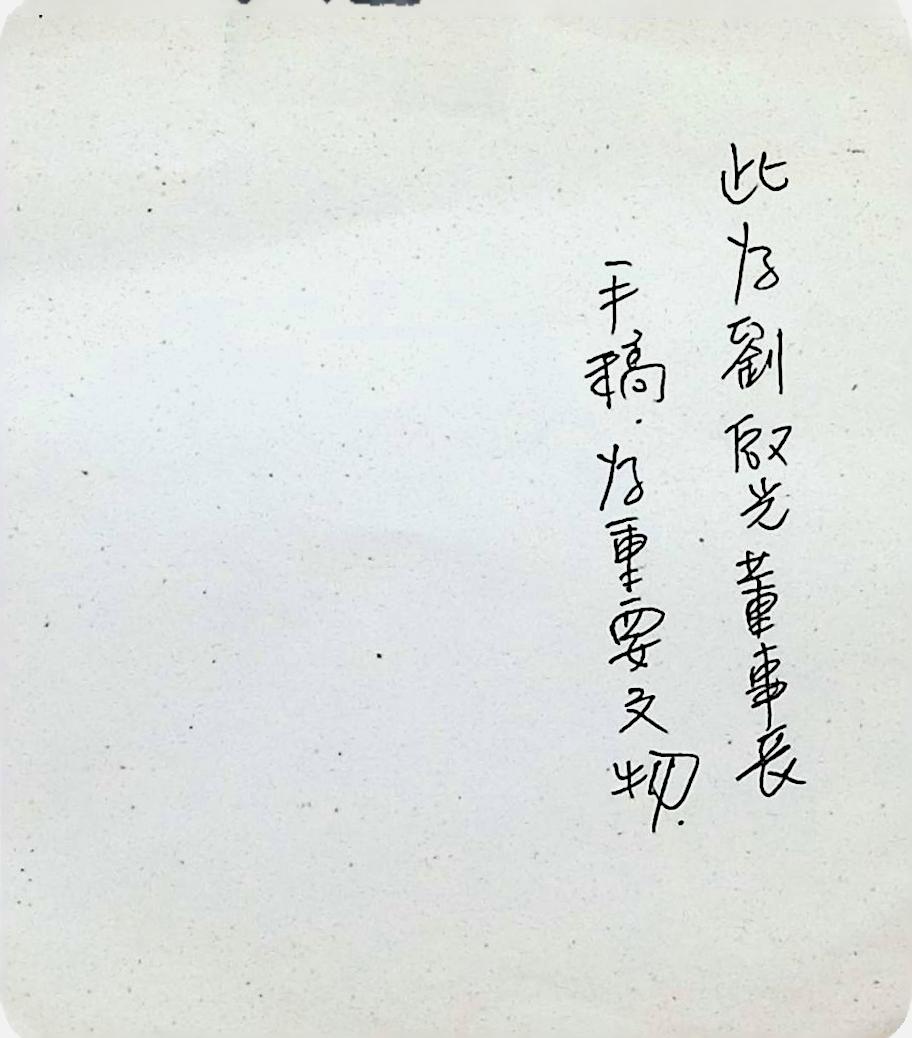 此為劉啟光董事長
手稿．為重要文物.